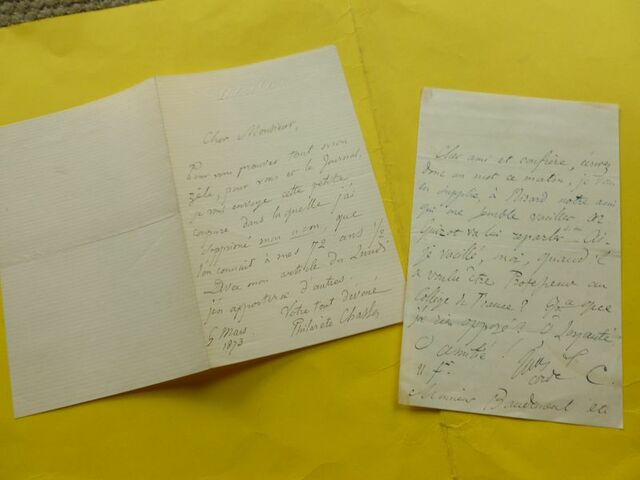 Cher Monsieur,
Pour vous prouver tout mon
zèle, pour vous et le Journal,
je vous envoye cette petite
dans laquelle j'ai
supprimé mon nom, que
l'on connait à mes 72 ans 1/2
Avec mon article du Lundi
j'en apporterai d'autres.
Votre tout dévoué
5 Mars Philarète Chasles
1873
Cher ami et confrère, écrivez
donc un mot ce matin, je vous
en supplie, à notre ami
qui me semble vaciller et
Guizot va lui repartir
je vacillé, moi, quand il
a voulu être Professeur au
Collège de France?
j'ai rien opposé? O Loyauté!
O amitié!
C.
11 fr
Monsieur Baudement etc